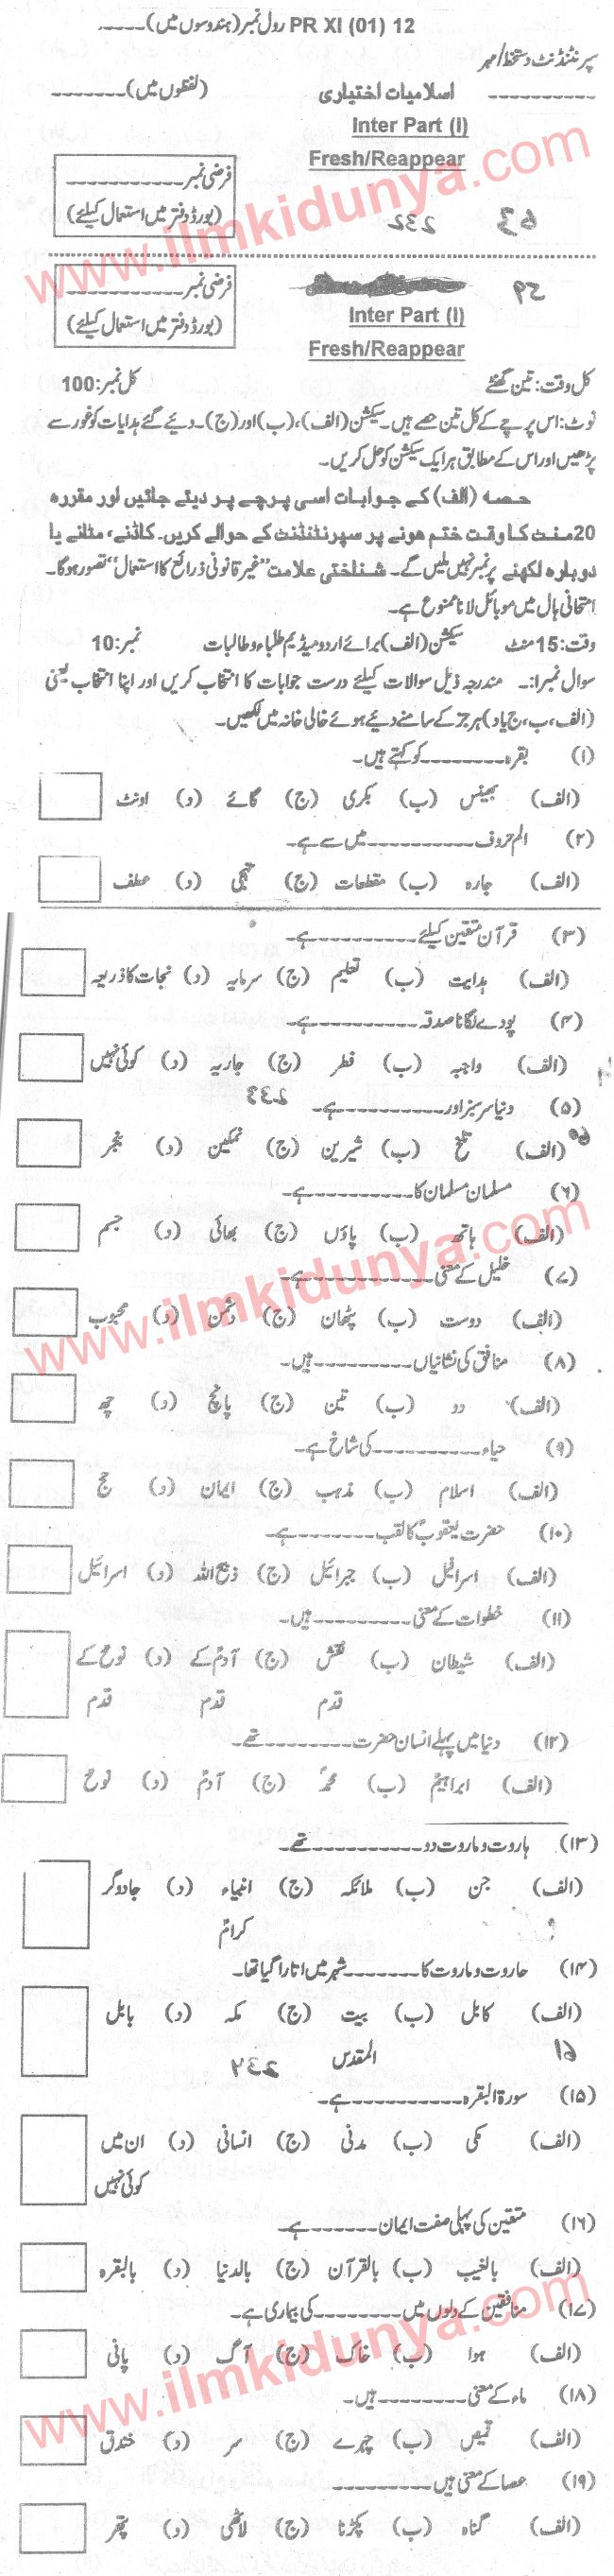 PR XI (01) 12 رول نمبر (ہندوسوں میں)-----
سپرنٹنڈنٹ دستخط/مہر
---------- اسلامیات اختیاری (لفظوں میں)-------
Inter Part (I)
Fresh/Reappear
فرضی نمبر-----------
(بورڈ دفتر میں استعمال کیلئے)
63 232
فرضی نمبر-----------
(بورڈ دفتر میں استعمال کیلئے)
59
Inter Part (I)
Fresh/Reappear
کل وقت: تین گھنٹے کل نمبر: 100
نوٹ: اس پرچے کے کل تین حصے ہیں۔ سیکشن (الف)، (ب) اور (ج)۔ دیئے گئے ہدایات کو غور سے
پڑھیں اور اس کے مطابق ہر ایک سیکشن کو حل کریں۔
حصہ (الف) کے جوابات اسی پرچے پر دیئے جائیں اور مقررہ
20 منٹ کا وقت ختم ہونے پر سپرنٹنڈنٹ کے حوالے کریں۔ کاٹنے، مٹانے یا
دوبارہ لکھنے پر نمبر نہیں ملیں گے۔ شناختی علامت "غیر قانونی ذرائع کا استعمال" تصور ہوگا۔
امتحانی ہال میں موبائل لانا ممنوع ہے۔
وقت: 15 منٹ سیکشن (الف) برائے اردو میڈیم طلباء و طالبات نمبر: 10
سوال نمبر ۱:۔ مندرجہ ذیل سوالات کیلئے درست جوابات کا انتخاب کریں اور اپنا انتخاب یعنی
(الف، ب، ج یا د) ہر جز کے سامنے دیئے ہوئے خالی خانہ میں لکھیں۔
(۱) بقرہ--------کو کہتے ہیں۔
(الف) بھینس (ب) بکری (ج) گائے (د) اونٹ
(۲) الم حروف-----------میں سے ہے۔
(الف) جارہ (ب) مقطعات (ج) تہجی (د) عطف
(۳) قرآن متقین کیلئے----------ہے۔
(الف) ہدایت (ب) تعلیم (ج) سرمایہ (د) نجات کا ذریعہ
(۴) پودے لگانا صدقہ----------ہے۔
(الف) واجبہ (ب) فطر (ج) جاریہ (د) کوئی نہیں
(۵) دنیا سرسبز اور----------ہے۔ 233
60
(الف) تلخ (ب) شیریں (ج) نمکین (د) بنجر
(۶) مسلمان مسلمان کا----------ہے۔
(الف) ہاتھ (ب) پاؤں (ج) بھائی (د) جسم
(۷) خلیل کے معنی--------------ہے۔
(الف) دوست (ب) پٹھان (ج) دشمن (د) محبوب
(۸) منافق کی نشانیاں---------ہیں۔
(الف) دو (ب) تین (ج) پانچ (د) چھ
(۹) حیاء-----------کی شاخ ہے۔
(الف) اسلام (ب) مذہب (ج) ایمان (د) حج
(۱۰) حضرت یعقوبؑ کا لقب--------ہے۔
(الف) اسرافیل (ب) جبرائیل (ج) ذبیح اللہ (د) اسرائیل
(۱۱) خطوات کے معنی---------ہیں۔
(الف) شیطان (ب) نقش (ج) آدمؑ کے (د) نوحؑ کے
قدم قدم قدم
(۱۲) دنیا میں پہلے انسان حضرت---------تھے۔
(الف) ابراہیمؑ (ب) محمدؐ (ج) آدمؑ (د) نوحؑ
(۱۳) ہاروت و ماروت دو-----------تھے۔
(الف) جن (ب) ملائکہ (ج) انبیاء (د) جادوگر
کرامؑ
(۱۴) ھاروت و ماروت کا--------شہر میں اتارا گیا تھا۔
(الف) کابل (ب) بیت (ج) مکہ (د) بابل
المقدس
61 234
(۱۵) سورۃ البقرہ-----------ہے۔
(الف) مکی (ب) مدنی (ج) انسانی (د) ان میں
کوئی نہیں
(۱۶) متقین کی پہلی صفت ایمان-------ہے۔
(الف) بالغیب (ب) بالقرآن (ج) بالدنیا (د) بالبقرہ
(۱۷) منافقین کے دلوں میں---------کی بیماری ہے۔
(الف) ہوا (ب) خاک (ج) آگ (د) پانی
(۱۸) ماء کے معنی---------ہیں۔
(الف) قمیص (ب) چہرے (ج) سر (د) خندق
(۱۹) عصا کے معنی ہیں----------
(الف) گناہ (ب) پکڑنا (ج) لاٹھی (د) پتھر
www.ilmkidunya.com
www.ilmkidunya.com
www.ilmkidunya.com